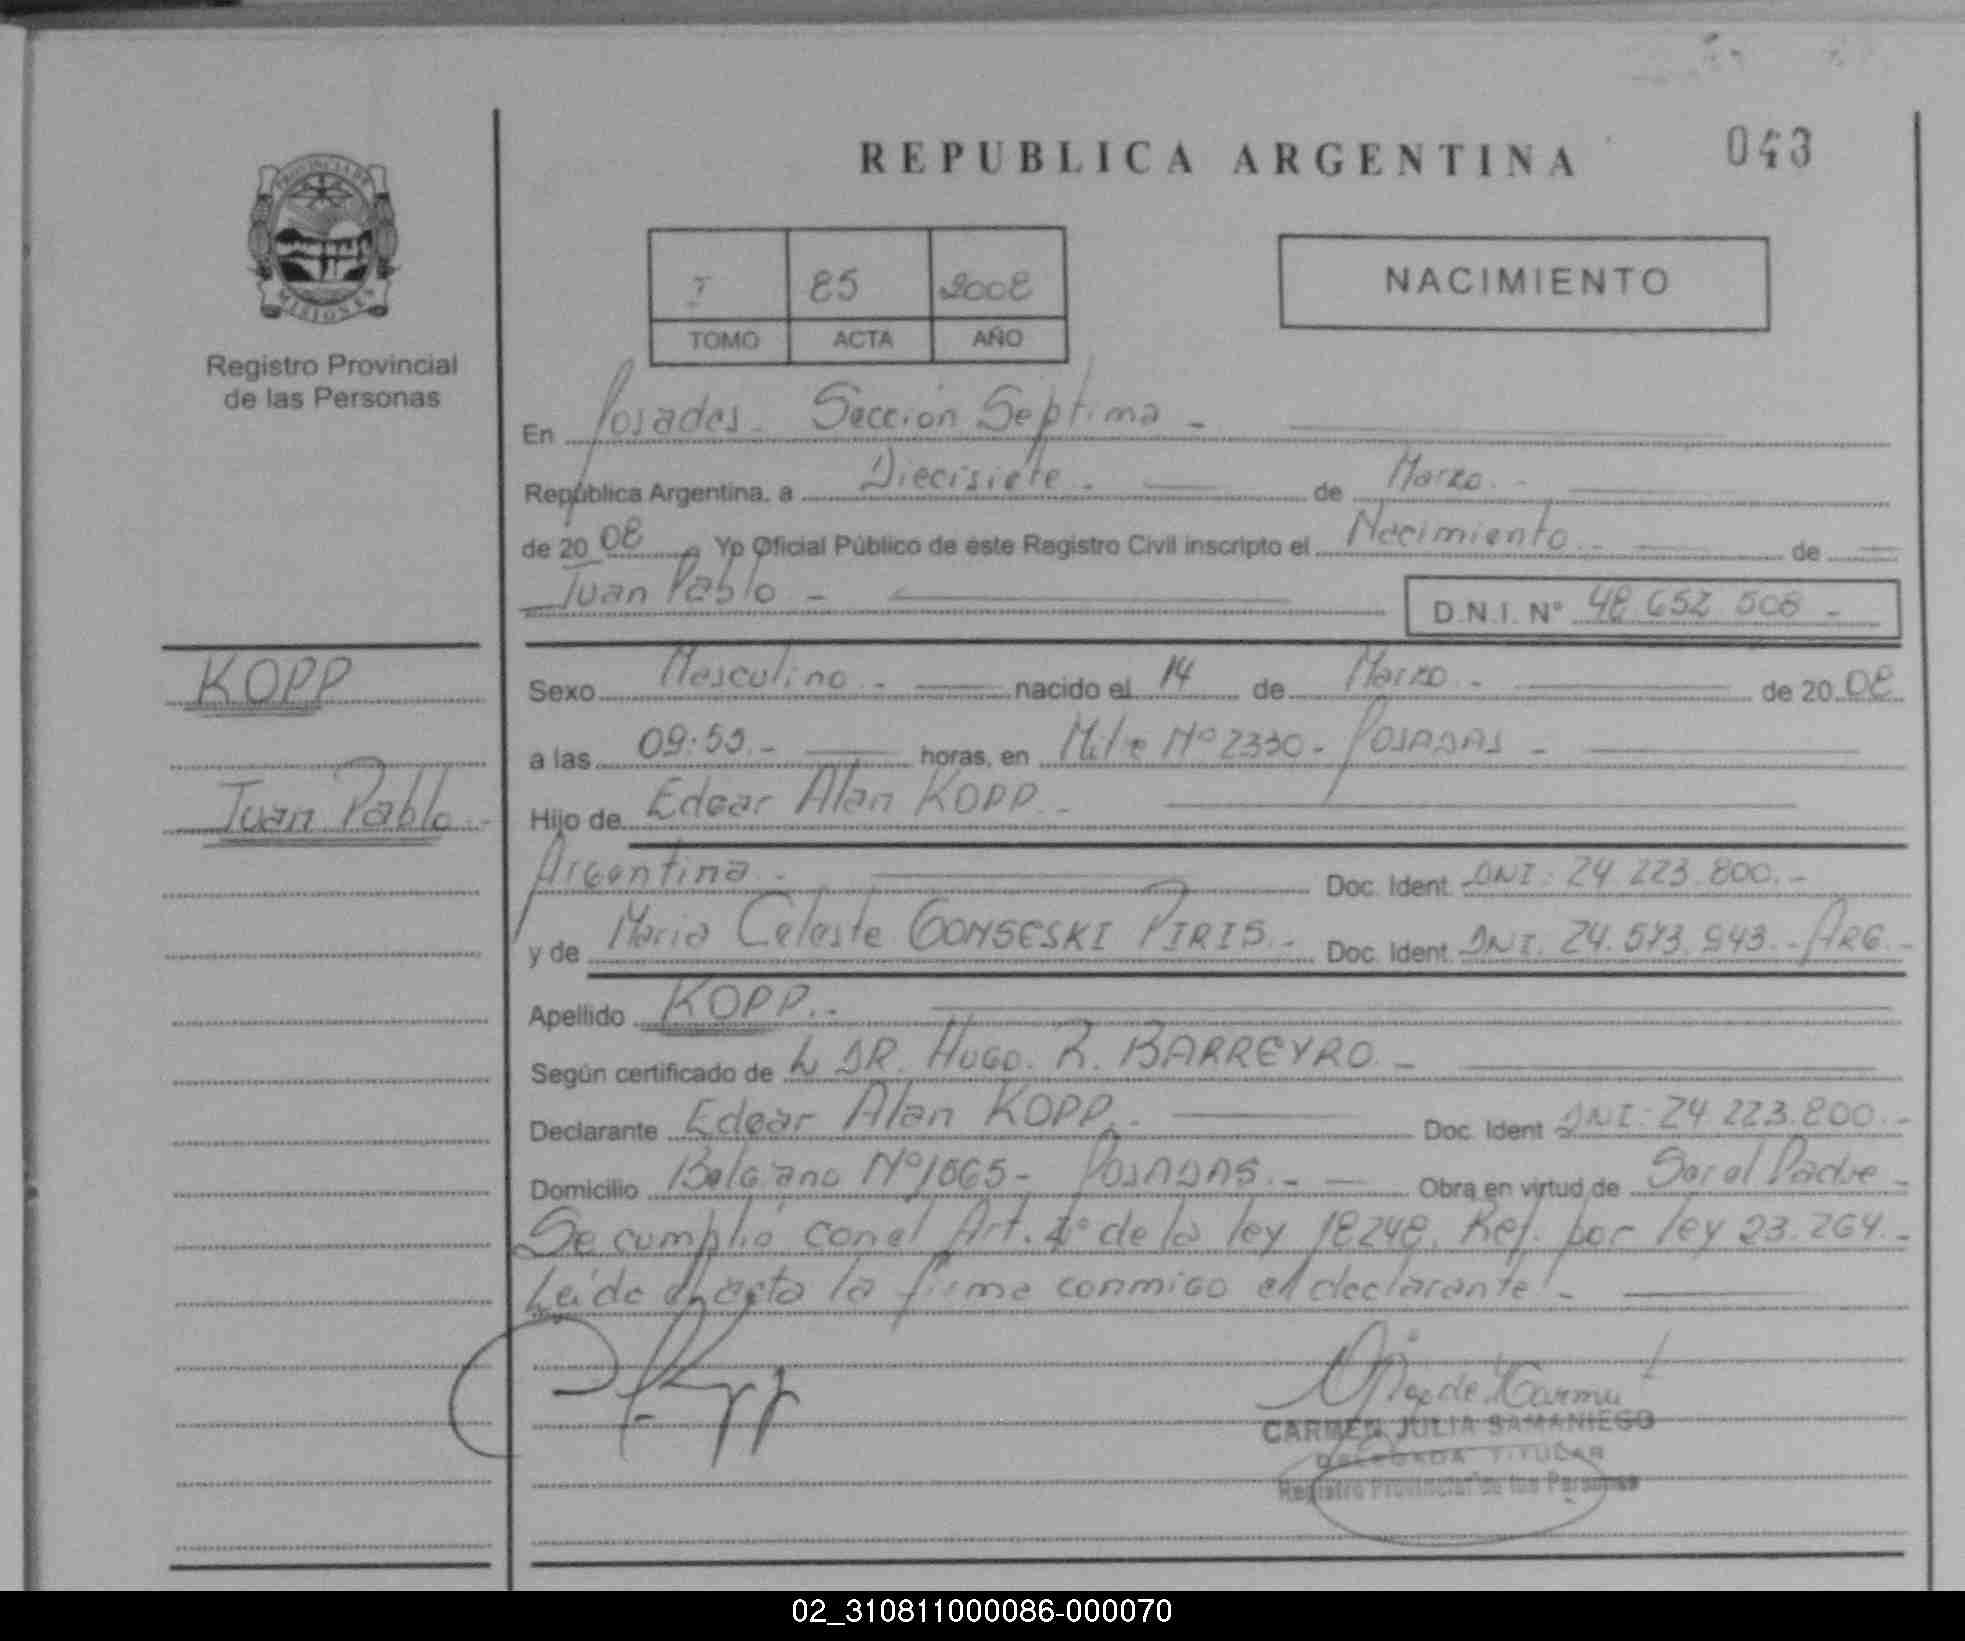 REPUBLICA ARGENTINA
043
PROVINCIA DE
MISIONES
Registro Provincial
de las Personas
I 85 2008
TOMO ACTA AÑO
NACIMIENTO
En Posadas - Sección Septima -
República Argentina, a Diecisiete - de Marzo -
de 20 08 Yo Oficial Público de este Registro Civil inscripto el Nacimiento - de
Juan Pablo - D.N.I. N° 48 652 508 -
KOPP
Juan Pablo -
Sexo Masculino - nacido el 14 de Marzo - de 20 08
a las 09:55 - horas, en Mitre Nº 2330 - POSADAS -
Hijo de Edgar Alan KOPP -
Argentina - Doc. Ident. DNI: 24 223.800. -
y de Maria Celeste GOMSESKI PIRIS - Doc. Ident. DNI. 24.573.943 - ARG. -
Apellido KOPP. -
Según certificado de DR. HUGO. R. BARREYRO -
Declarante Edgar Alan KOPP. - Doc. Ident DNI: 24 223.800. -
Domicilio Belgrano Nº 1565 - POSADAS. - Obra en virtud de Ser el Padre -
Se cumplió con el Art. 4º de la ley 18248. Ref. por ley 23.264. -
Leída el acta la firma conmigo el declarante! -
Kopp
CARMEN JULIA SAMANIEGO
DELEGADA TITULAR
Registro Provincial de las Personas
02_310811000086-000070